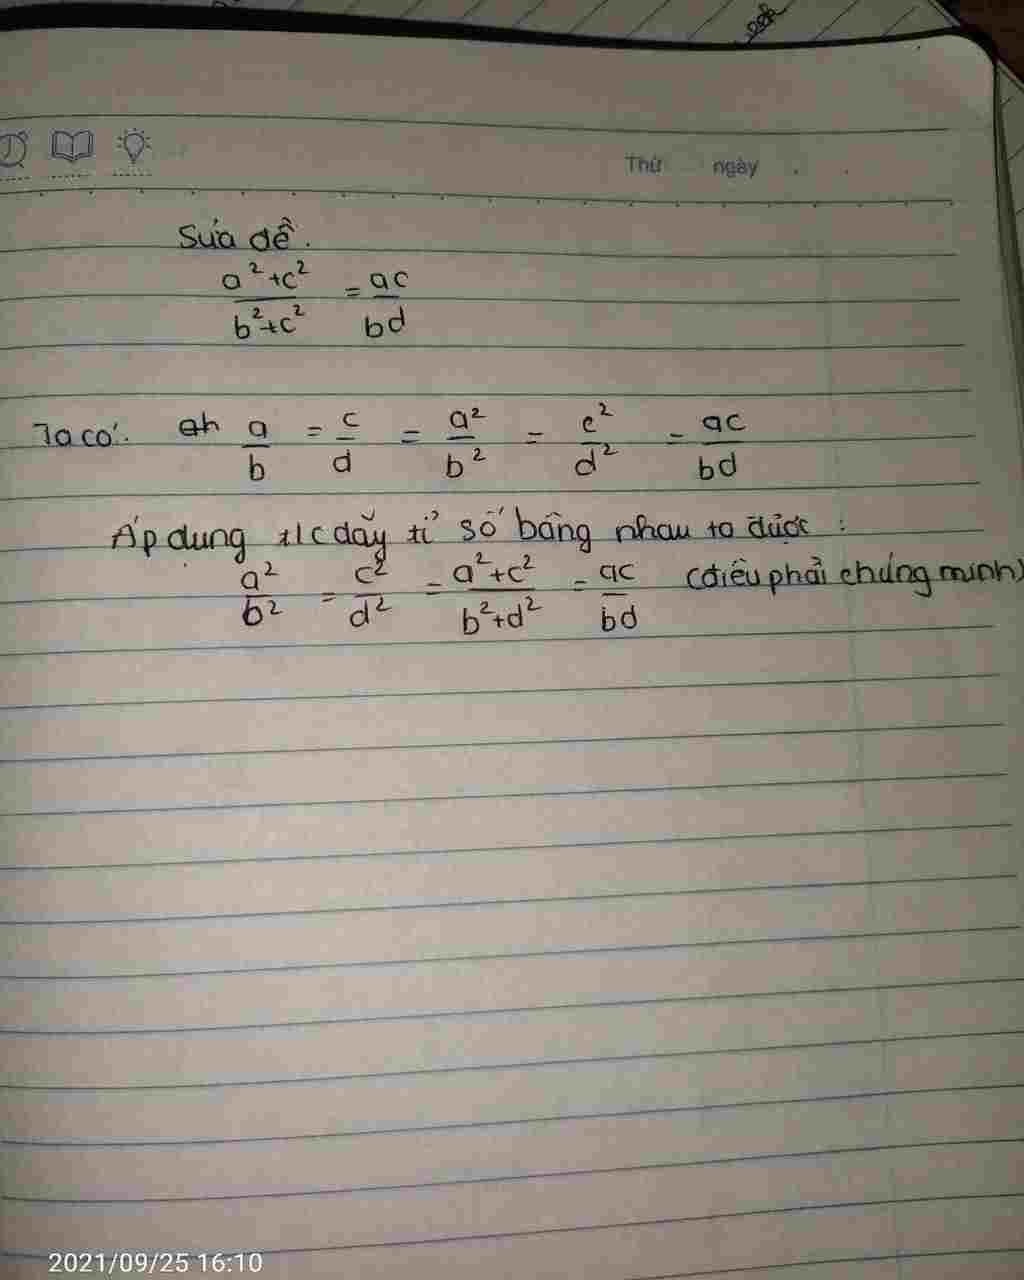 Thứ ngày
Sửa đề.
a²+c²/b²+c² = ac/bd
Ta có: a/b = c/d = a²/b² = c²/d² = ac/bd
Áp dụng t/c dãy tỉ số bằng nhau ta được:
a²/b² = c²/d² = a²+c²/b²+d² = ac/bd (điều phải chứng minh)
2021/09/25 16:10